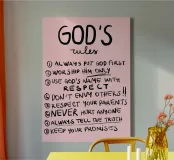 GOD'S
rules
① ALWAYS PUT GOD FIRST
② WORSHIP HIM ONLY
③ USE GOD'S NAME WITH
RESPECT
④ DON'T ENVY OTHERS!!
⑤ RESPECT YOUR PARENTS
⑥ NEVER HURT ANYONE
⑦ ALWAYS TELL THE TRUTH
⑧ KEEP YOUR PROMISES